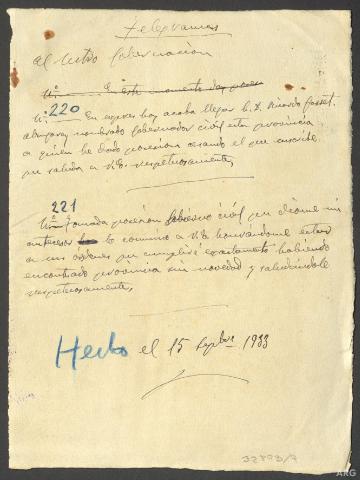 Telegramas
Al Mtro Gobernación
Nº En este momento doy posesi
Nº 220 En expres hoy acaba llegar D. Ricardo Gasset
nombrado Gobernador Civil esta provincia
a quien he dado posesion cesando el que suscribe
que saluda a V.E. respetuosamente,
221
Nº Tomada posesión Gobierno civil que dióme mi
antecesor lo comunico a V.E. honrandome estar
a sus ordenes que cumpliré exactamente habiendo
encontrado provincia sin novedad y saludándole
respetuosamente,
Hecho el 15 Sepbre 1933
32893/7
ARG